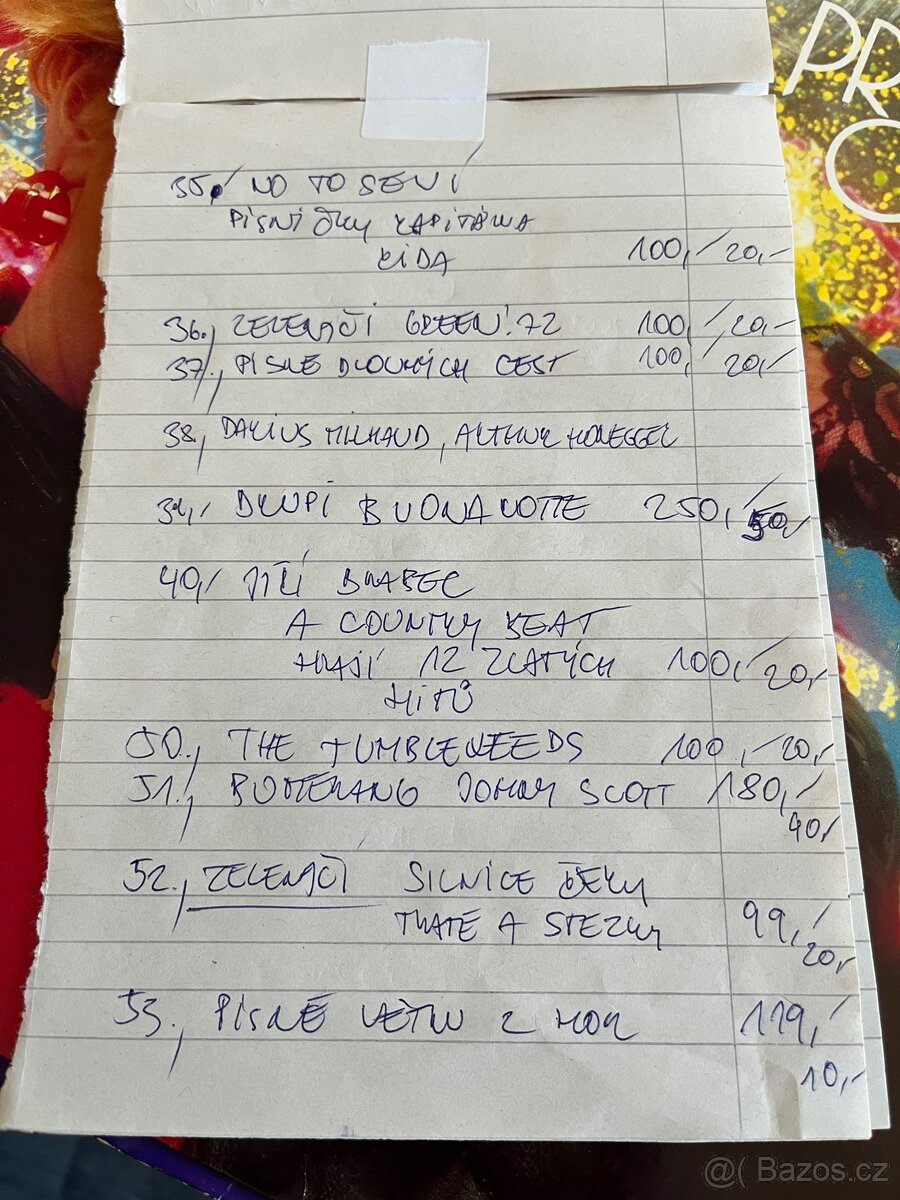 35,/ NO TO SEVÍ
PÍSNIČKY KAPITÁNA
KIDA 100,/ 20,-
36., ZELENÁČI GREEN! 72 100,/ 20,-
37/, PÍSNĚ DLOUHÝCH CEST 100,/ 20,-
38, DARIUS MILHAUD, ARTHUR HONEGGER
39,/ DRUPI BUONANOTTE 250,/ 50,-
40,/ JIŘÍ BRABEC
A COUNTRY BEAT
HRAJÍ 12 ZLATÝCH 100,/ 20,-
HITŮ
50., THE TUMBLEWEEDS 100,-/ 20,-
51., BUMERANG JOHNY SCOTT 180,/
40,-
52., ZELENÁČI SILNICE ŘEKY
TRATĚ A STEZKY 99,/
20,-
53., PÍSNĚ VĚTRU Z HOR 119,/
10,-
PR
O
@( Bazos.cz